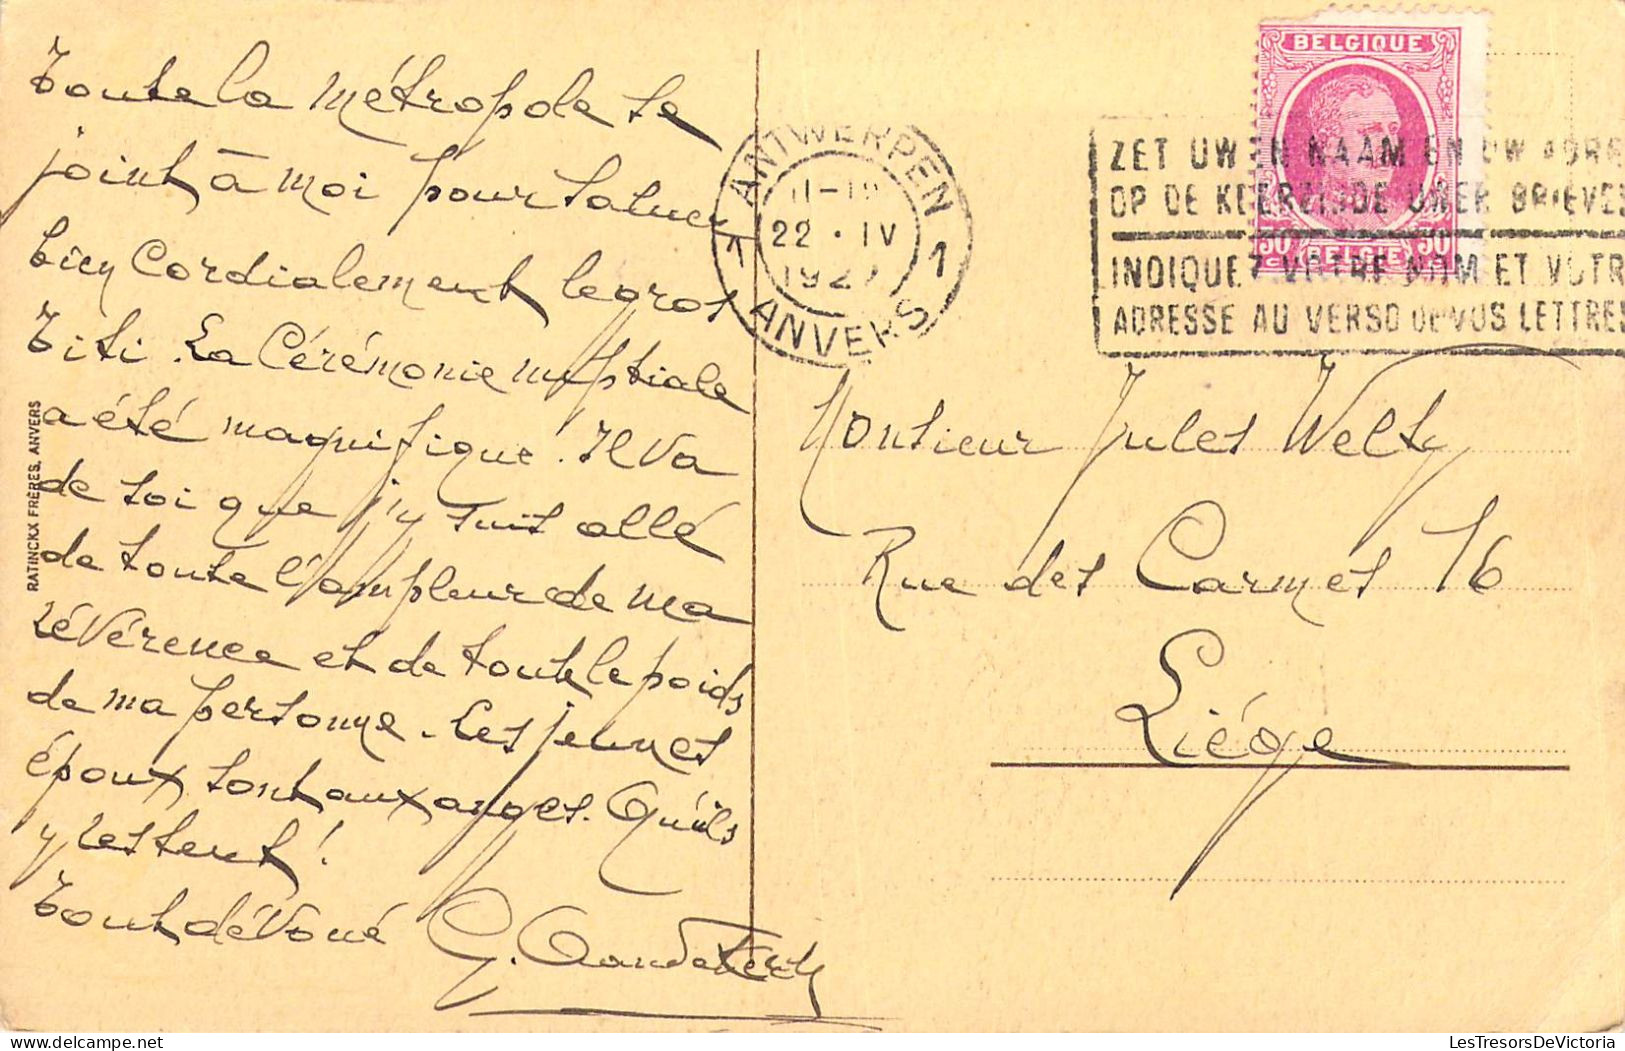 Toute la métropole se
joint à moi pour saluer
bien cordialement le gros
Titi. La Cérémonie nuptiale
a été magnifique. Il va
de soi que j'y suis allé
de toute l'ampleur de ma
révérence et de tout le poids
de ma personne. Les jeunes
époux sont aux anges. Qu'ils
y restent!
Tout dévoué G.
RATINCKX FRÈRES, ANVERS
ANTWERPEN
22 · IV
1927
1 1
ANVERS
BELGIQUE
50 BELGIE 50
ZET UWEN NAAM EN UW ADRE
OP DE KEERZIJDE UWER BRIEVE
INDIQUEZ VOTRE NOM ET VOTR
ADRESSE AU VERSO DE VOS LETTRES
Monsieur Jules Welty
Rue des Carmes 16
Liége
LesTresorsDeVictoria.com